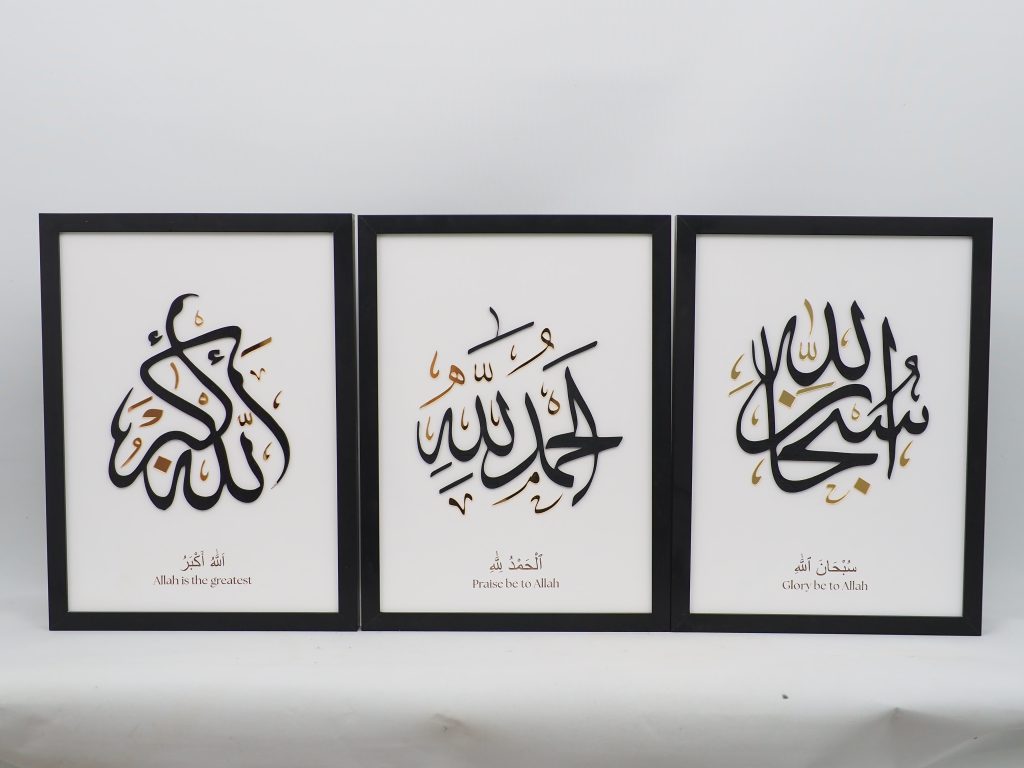 الله أكبر
اَللّٰهُ أَكْبَرُ
Allah is the greatest
الحمد لله
ٱلْحَمْدُ لِلّٰهِ
Praise be to Allah
سبحان الله
سُبْحَانَ ٱللّٰهِ
Glory be to Allah